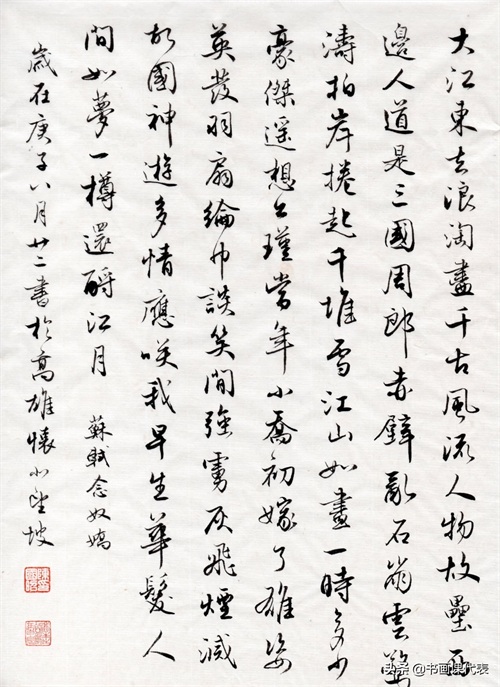 大江東去浪淘盡千古風流人物故壘西
邊人道是三國周郎赤壁亂石崩雲驚
濤拍岸捲起千堆雪江山如畫一時多少
豪傑遥想公瑾當年小喬初嫁了雄姿
英發羽扇綸巾談笑間強虜灰飛煙滅
故國神遊多情應咲我早生華髮人
間如夢一樽還酹江月 蘇軾念奴嬌
歲在庚子八月廿二書於高雄懷坡
头条 @书画课代表